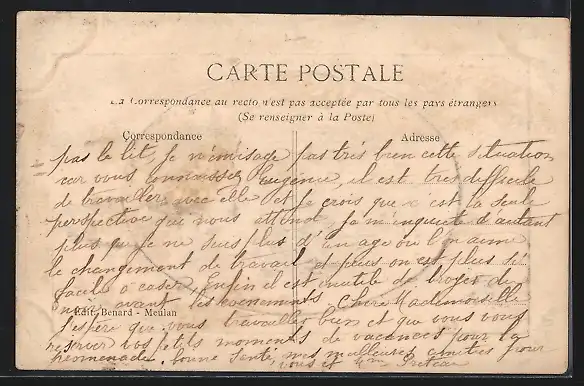 CARTE POSTALE
La Correspondance au recto n'est pas acceptée par tous les pays étrangers
(Se renseigner à la Poste)
Correspondance
Adresse
pas le lit, Je n'emisage pas très bien cette situation
car vous connaissez Eugénie, il est très difficile
de travailler avec elle et je crois que c'est la seule
perspective que nous attend je m'inquiete d'autant
plus que je ne suis plus d'un age où l'on aime
le changement de travail et puis on est plus si
facile à caser enfin il est inutile de broyer du
noir avant les évenements. Chère Mademoiselle
Edit. Benard - Meulan
j'espère que vous travaillez bien et que vous vous
reserver vos petits moments de vacances pour la
promenade. bonne santé, mes meilleures amitiés pour
vous et